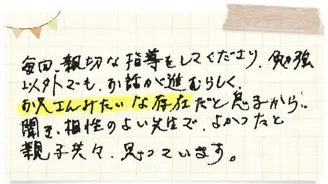 毎回、親切な指導をしてくださり、勉強
以外でも、お話が進むらしく、
お兄さんみたいな存在だと息子から
聞き、相性のよい先生で、よかったと
親子共々、思っています。